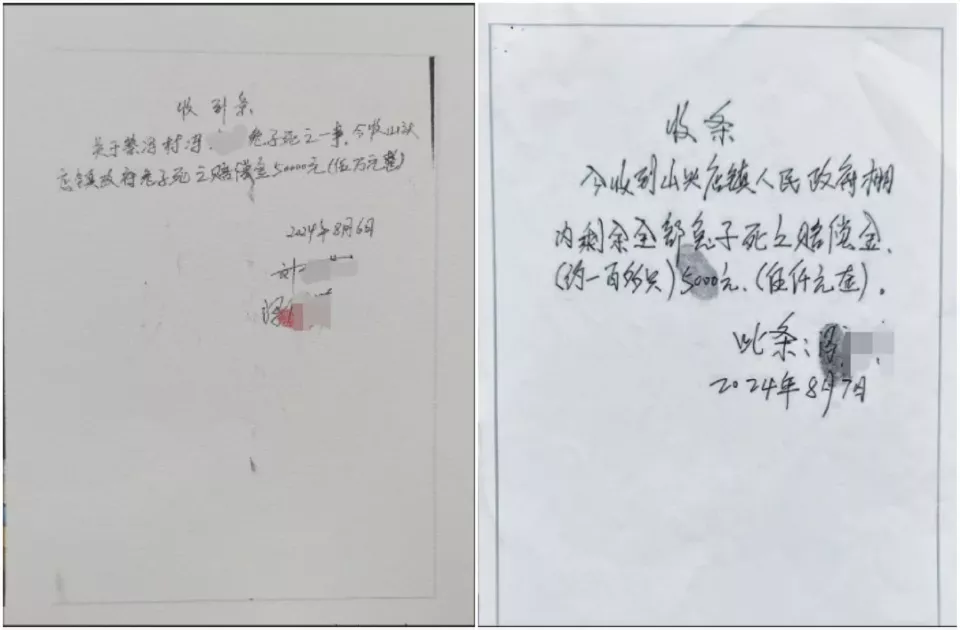 收到条
关于蔡冯村冯 兔子死之一事,今收山头
店镇政府兔子死之赔偿金50000元(伍万元整)
2024年8月6日
刘
冯
收条
今收到山头店镇人民政府棚
内剩余全部兔子死之赔偿金、
(约一百多只)5000元、(伍仟元整)。
收条:
2024年8月7日